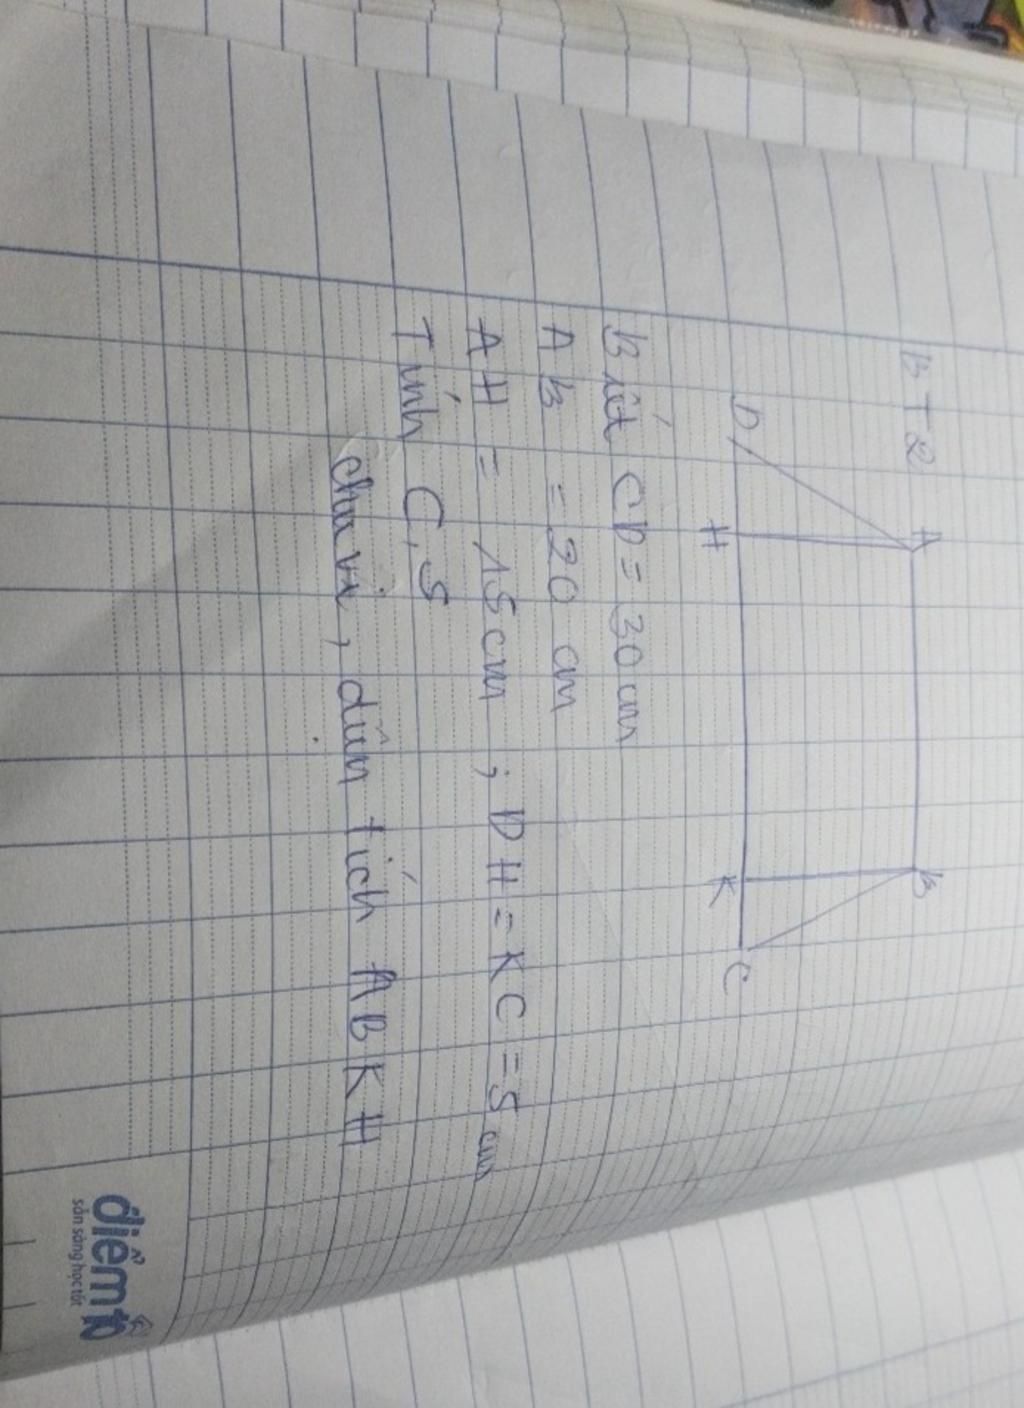 BT2
A B
D H K C
Biết CD = 30 cm
AB = 20 cm
AH = 15 cm , DH = KC = 5 cm
Tính C, S
chu vi, diện tích ABKH
điểm 10
sẵn sàng học tốt